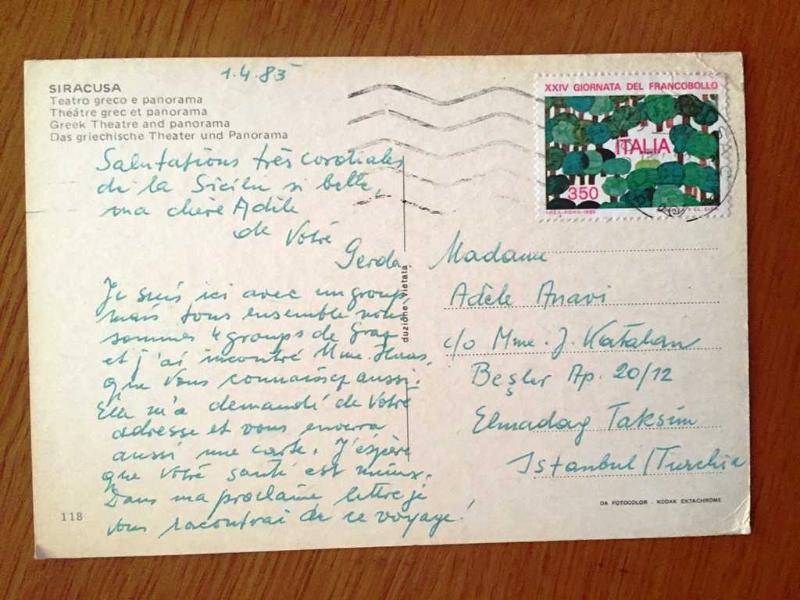 1.4.83
SIRACUSA
Teatro greco e panorama
Théâtre grec et panorama
Greek Theatre and panorama
Das griechische Theater und Panorama
Salutations très cordiales
de la Sicilu si belle,
ma chère Adèle
de Votré
Gerda
Je suis ici avec un group,
mais tous ensemble nous
sommes 4 groups de Graz
et j'ai incontré Mme
que Vous connaissez aussi.
Elle m'a demandé de Votré
adresse et vous enverra
aussi une carte. J'éspère
que Votré santé est mieux.
Dans ma proclaine lettre je
vous racontrai de ce voyage!
118
duzione vietata
XXIV GIORNATA DEL FRANCOBOLLO
ITALIA
350
Madame
Adèle Anavi
c/o Mme. J. Katalan
Beşler Ap. 20/12
Elmadag Taksim
Istanbul/Turchia
DA FOTOCOLOR - KODAK EKTACHROME